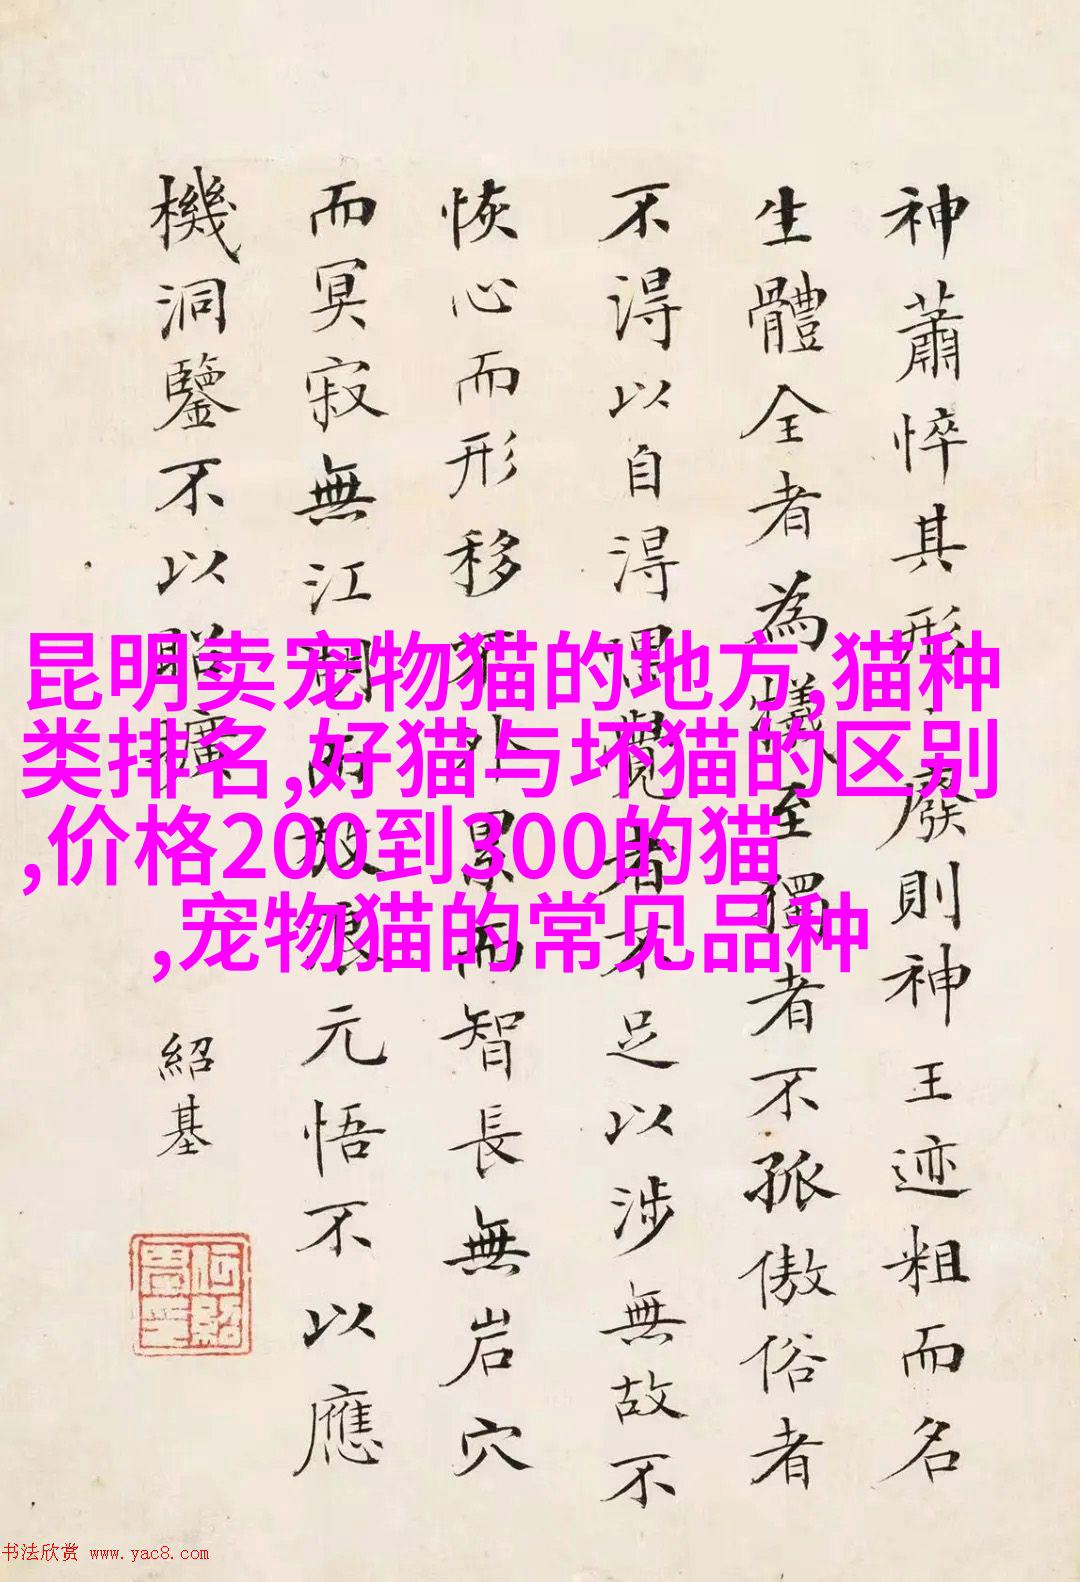 神蕭悴其形廢則神王迹粗而名
生體全者為犧至獨者不孤傲俗者
不得以自得覺者不足以涉無故不
恢心而形移外累而智長無岩穴
而冥寂無江湖而放浪元悟不以應
機洞鑒不以
紹基
昆明卖宠物猫的地方,猫种
类排名,好猫与坏猫的区别
,价格200到300的猫
,宠物猫的常见品种
书法欣赏 www.yac8.com